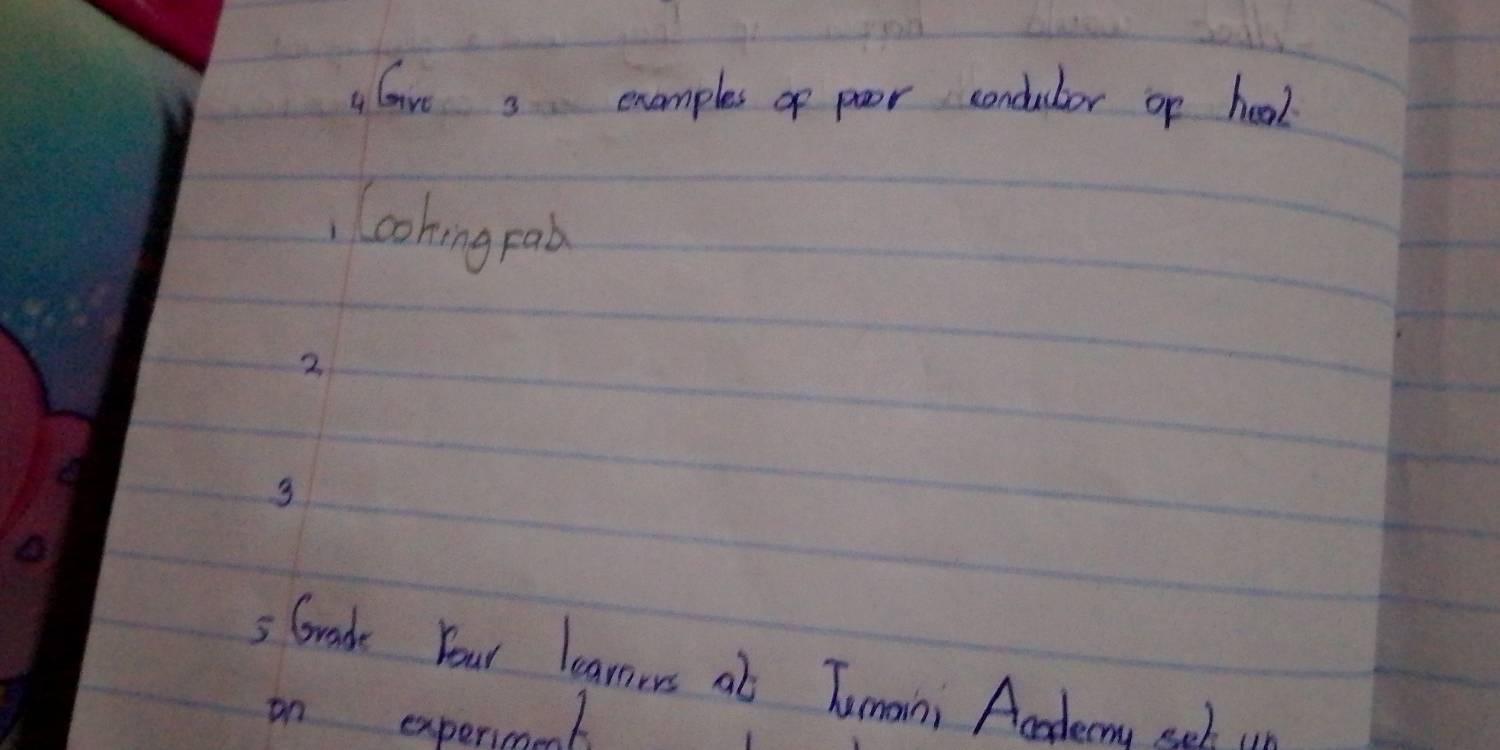 4 Give 3 examples of poor conductor of heat
1 Cooking Fat
2
3
5 Grade Four learners at Tumaini Academy set up
an experiment